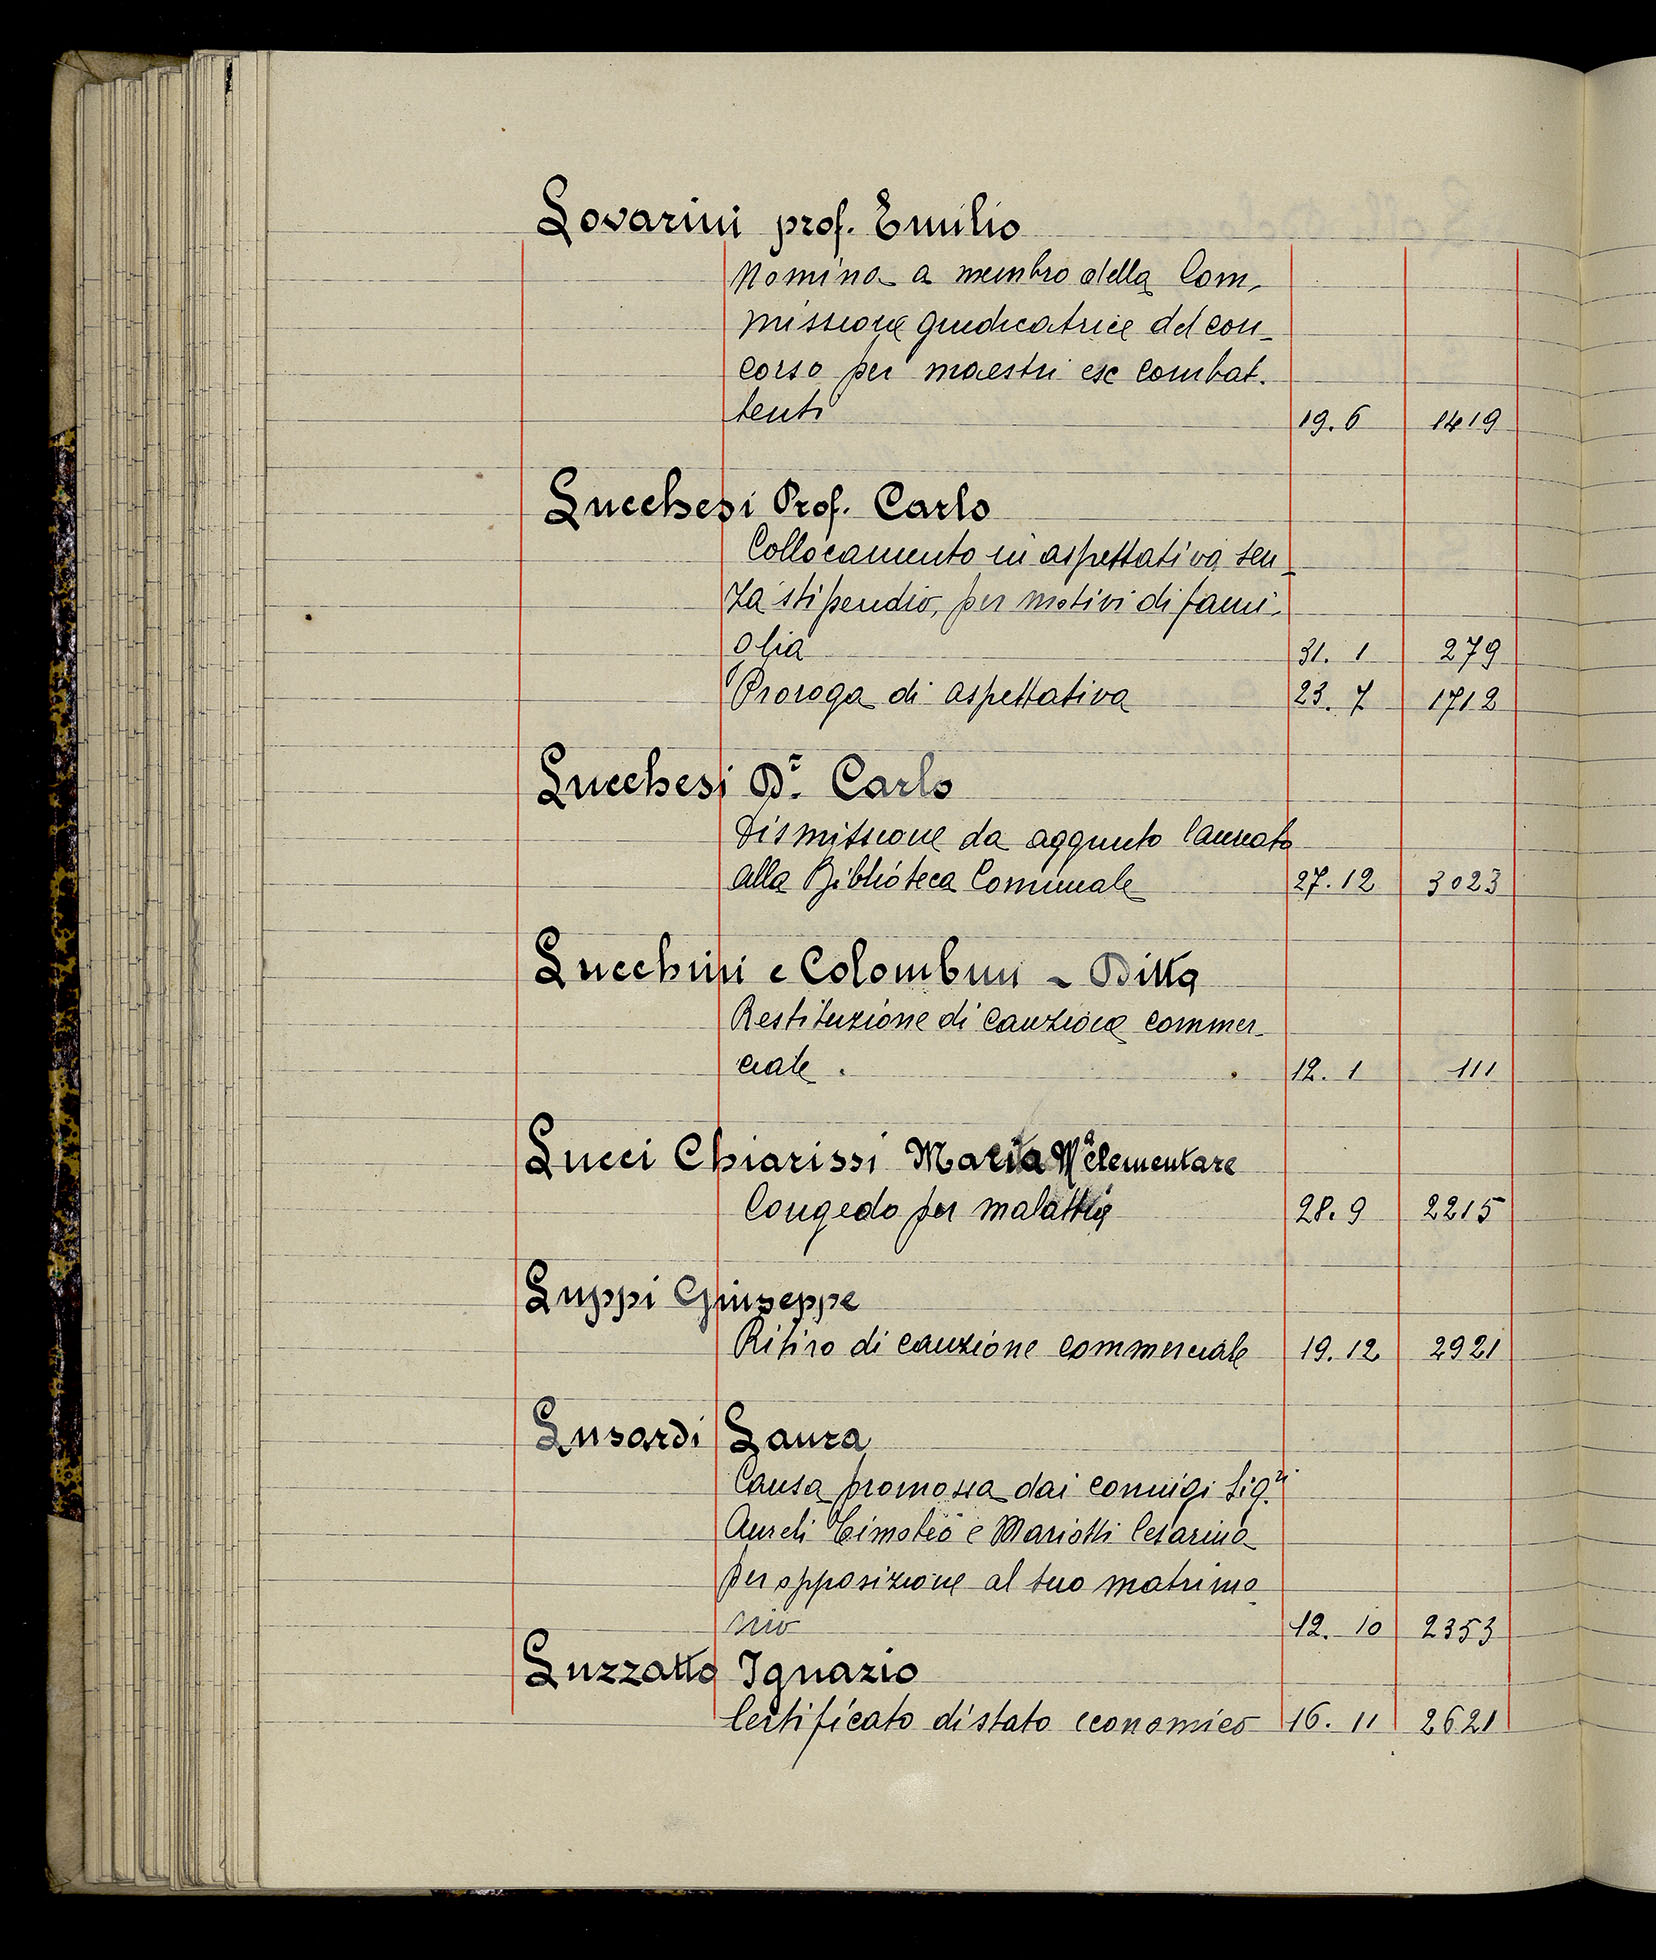 Lovarini prof. Emilio
Nomina a membro della Com-
missione giudicatrice del con-
corso per maestri ex combat-
tenti 19.6 1419
Lucchesi Prof. Carlo
Collocamento in aspettativa sen-
za stipendio, per motivi di fami-
glia 31. 1 279
Proroga di aspettativa 23. 7 1712
Lucchesi Dr. Carlo
Dismissione da aggiunto laureato
alla Biblioteca Comunale 27.12 3023
Lucchini e Colombini - Ditta
Restituzione di cauzione commer-
ciale. 12. 1 111
Lucci Chiarissi Maria Mª elementare
Congedo per malattia 28.9 2215
Luppi Giuseppe
Ritiro di cauzione commerciale 19.12 2921
Lusardi Laura
Causa promossa dai coniugi Sig.ri
Aureli Timoteo e Mariotti Cesarina
per opposizione al suo matrimo-
nio 12. 10 2353
Luzzatto Ignazio
Certificato di stato economico 16. 11 2621